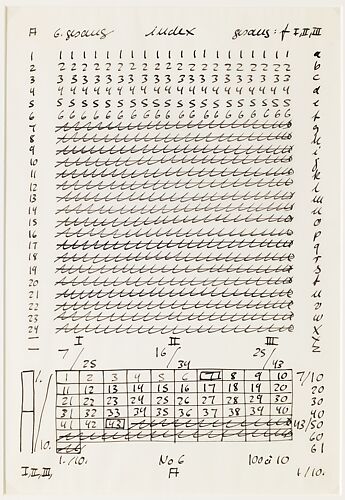 A 6. gesang index gesang: f I, II, III
1 1 1 1 1 1 1 1 1 1 1 1 1 1 1 1 1 1 1 1 1 a
2 2 2 2 2 2 2 2 2 2 2 2 2 2 2 2 2 2 2 2 2 b
3 3 3 3 3 3 3 3 3 3 3 3 3 3 3 3 3 3 3 3 3 c
4 4 4 4 4 4 4 4 4 4 4 4 4 4 4 4 4 4 4 4 4 d
5 5 5 5 5 5 5 5 5 5 5 5 5 5 5 5 5 5 5 5 5 e
6 6 6 6 6 6 6 6 6 6 6 6 6 6 6 6 6 6 6 6 6 f
7 g
8 h
9 i
10 j
11 k
12 l
13 m
14 n
15 o
16 p
17 q
18 r
19 s
20 t
21 u
22 v
23 w
24 x
I II III
7/25 16/34 25/43
1 2 3 4 5 6 7 8 9 10 7/10
11 12 13 14 15 16 17 18 19 20 20
21 22 23 24 25 26 27 28 29 30 30
31 32 33 34 35 36 37 38 39 40 40
41 42 43 43/50
60
61
1./10. No 6 100 à 10
I, II, III, A 1/10.